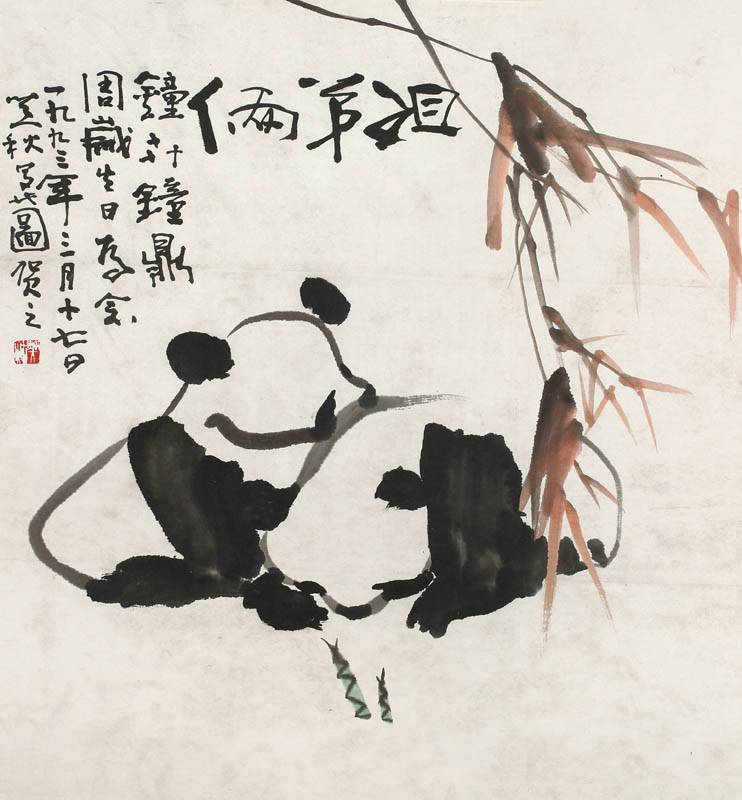 姐弟俩
鐘鐘鼎
周歲生日存念
一九九三年三月十七日
秋写此圖贺之